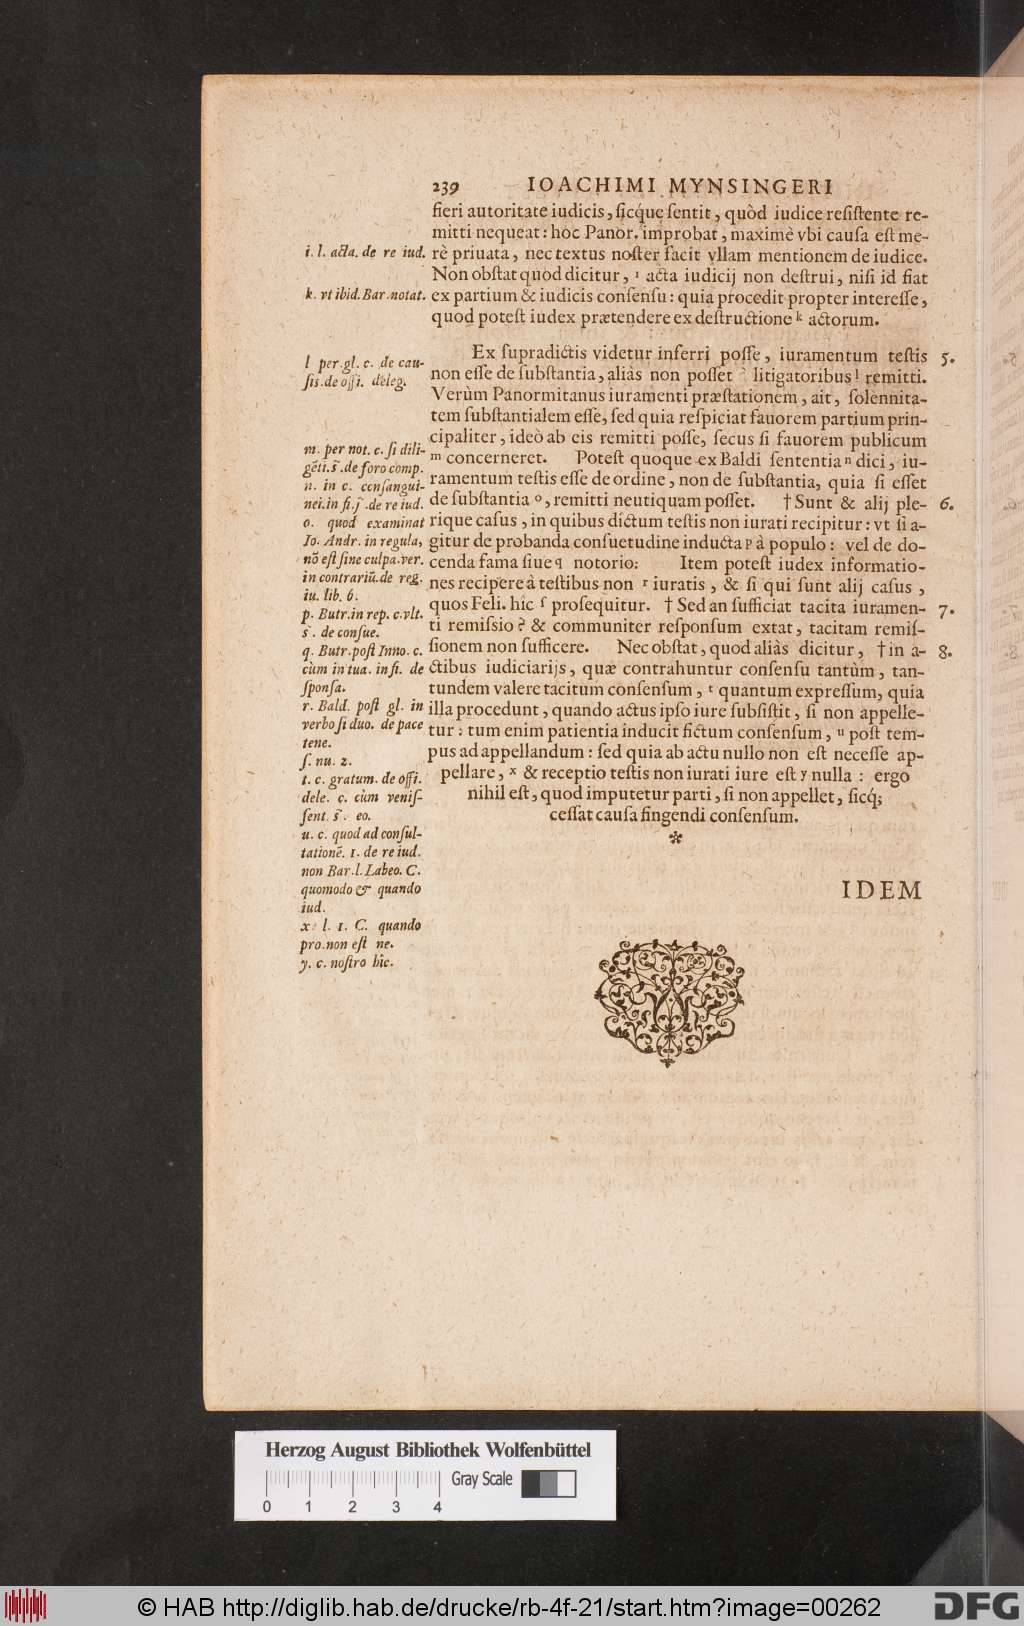 239 IOACHIMI MYNSINGERI
fieri autoritate iudicis, ſicq́ue ſentit, quòd iudice reſiſtente re-
mitti nequeat: hoc Panor. improbat, maximè vbi cauſa eſt me-
rè priuata, nec textus noſter facit vllam mentionem de iudice.
Non obſtat quòd dicitur, i acta iudicij non deſtrui, niſi id fiat
ex partium & iudicis conſenſu: quia procedit propter intereſſe,
quod poteſt iudex prætendere ex deſtructione k actorum.
Ex ſupradictis videtur inferri poſſe, iuramentum teſtis 5.
non eſſe de ſubſtantia, aliàs non poſſet litigatoribus l remitti.
Verùm Panormitanus iuramenti præſtationem, ait, ſolennita-
tem ſubſtantialem eſſe, ſed quia reſpiciat fauorem partium prin-
cipaliter, ideò ab eis remitti poſſe, ſecus ſi fauorem publicum
m concerneret. Poteſt quoque ex Baldi ſententia n dici, iu-
ramentum teſtis eſſe de ordine, non de ſubſtantia, quia ſi eſſet
de ſubſtantia o, remitti neutiquam poſſet. † Sunt & alij ple- 6.
rique caſus, in quibus dictum teſtis non iurati recipitur: vt ſi a-
gitur de probanda conſuetudine inducta p à populo: vel de do-
cenda fama ſiue q notorio: Item poteſt iudex informatio-
nes recipere à teſtibus non r iuratis, & ſi qui ſunt alij caſus,
quos Feli. hîc ſ proſequitur. † Sed an ſufficiat tacita iuramen- 7.
ti remiſsio? & communiter reſponſum extat, tacitam remiſ-
ſionem non ſufficere. Nec obſtat, quod aliàs dicitur, † in a- 8.
ctibus iudiciarijs, quæ contrahuntur conſenſu tantùm, tan-
tundem valere tacitum conſenſum, t quantum expreſſum, quia
illa procedunt, quando actus ipſo iure ſubſiſtit, ſi non appelle-
tur: tum enim patientia inducit fictum conſenſum, u poſt tem-
pus ad appellandum: ſed quia ab actu nullo non eſt neceſſe ap-
pellare, x & receptio teſtis non iurati iure eſt y nulla: ergo
nihil eſt, quod imputetur parti, ſi non appellet, ſicq́;
ceſſat cauſa fingendi conſenſum.
IDEM
i. l. acta. de re iud.
k. vt ibid. Bar. notat.
l per. gl. c. de cau-
ſis. de offi. deleg.
m. per not. c. ſi dili-
gẽti. s̃. de foro comp.
n. in c. conſangui-
nei. in fi. s̃. de re iud.
o. quod examinat
Io. Andr. in regula,
nõ eſt ſine culpa. ver.
in contrariũ. de reg.
iu. lib. 6.
p. Butr. in rep. c. vlt.
s̃. de conſue.
q. Butr. poſt Inno. c.
cùm in tua. in fi. de
ſponſa.
r. Bald. poſt gl. in
verbo ſi duo. de pace
tene.
ſ. nu. 2.
t. c. gratum. de offi.
dele. c. cùm veniſ-
ſent. s̃. eo.
u. c. quod ad conſul-
tationẽ. 1. de re iud.
non Bar. l. Labeo. C.
quomodo & quando
iud.
x. l. 1. C. quando
pro. non eſt ne.
y. c. noſtro hîc.
Herzog August Bibliothek Wolfenbüttel
Gray Scale
0 1 2 3 4
© HAB http://diglib.hab.de/drucke/rb-4f-21/start.htm?image=00262
DFG